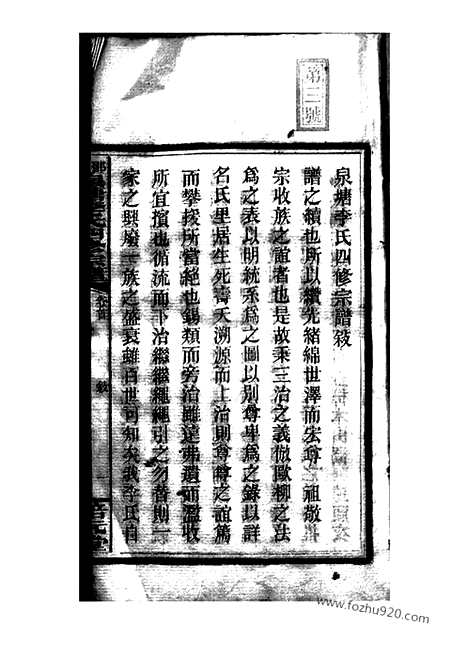 第三號
泉塘李氏四修宗譜敘
譜之續也所以纘先緒綿世澤而宏尊祖敬
宗收族之誼者也是故秉三治之義倣歐柳之法
為之表以明統系為之圖以別尊卑為之錄以詳
名氏里居生死壽夭溯源而上治則尊尊之誼篤
而攀援所當絕也錫類而旁治雖遠弗遺而濫收
所宜擯也循流而下治繼繼繩繩引之勿替則一
家之興廢一族之盛衰雖百世可知矣我李氏自
卷首
敘
www.fozhu920.com